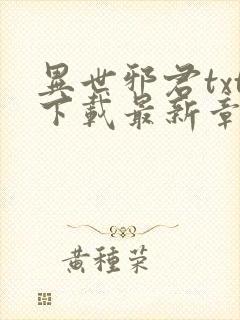 異世邪君txt
下載最新章
黃種菜